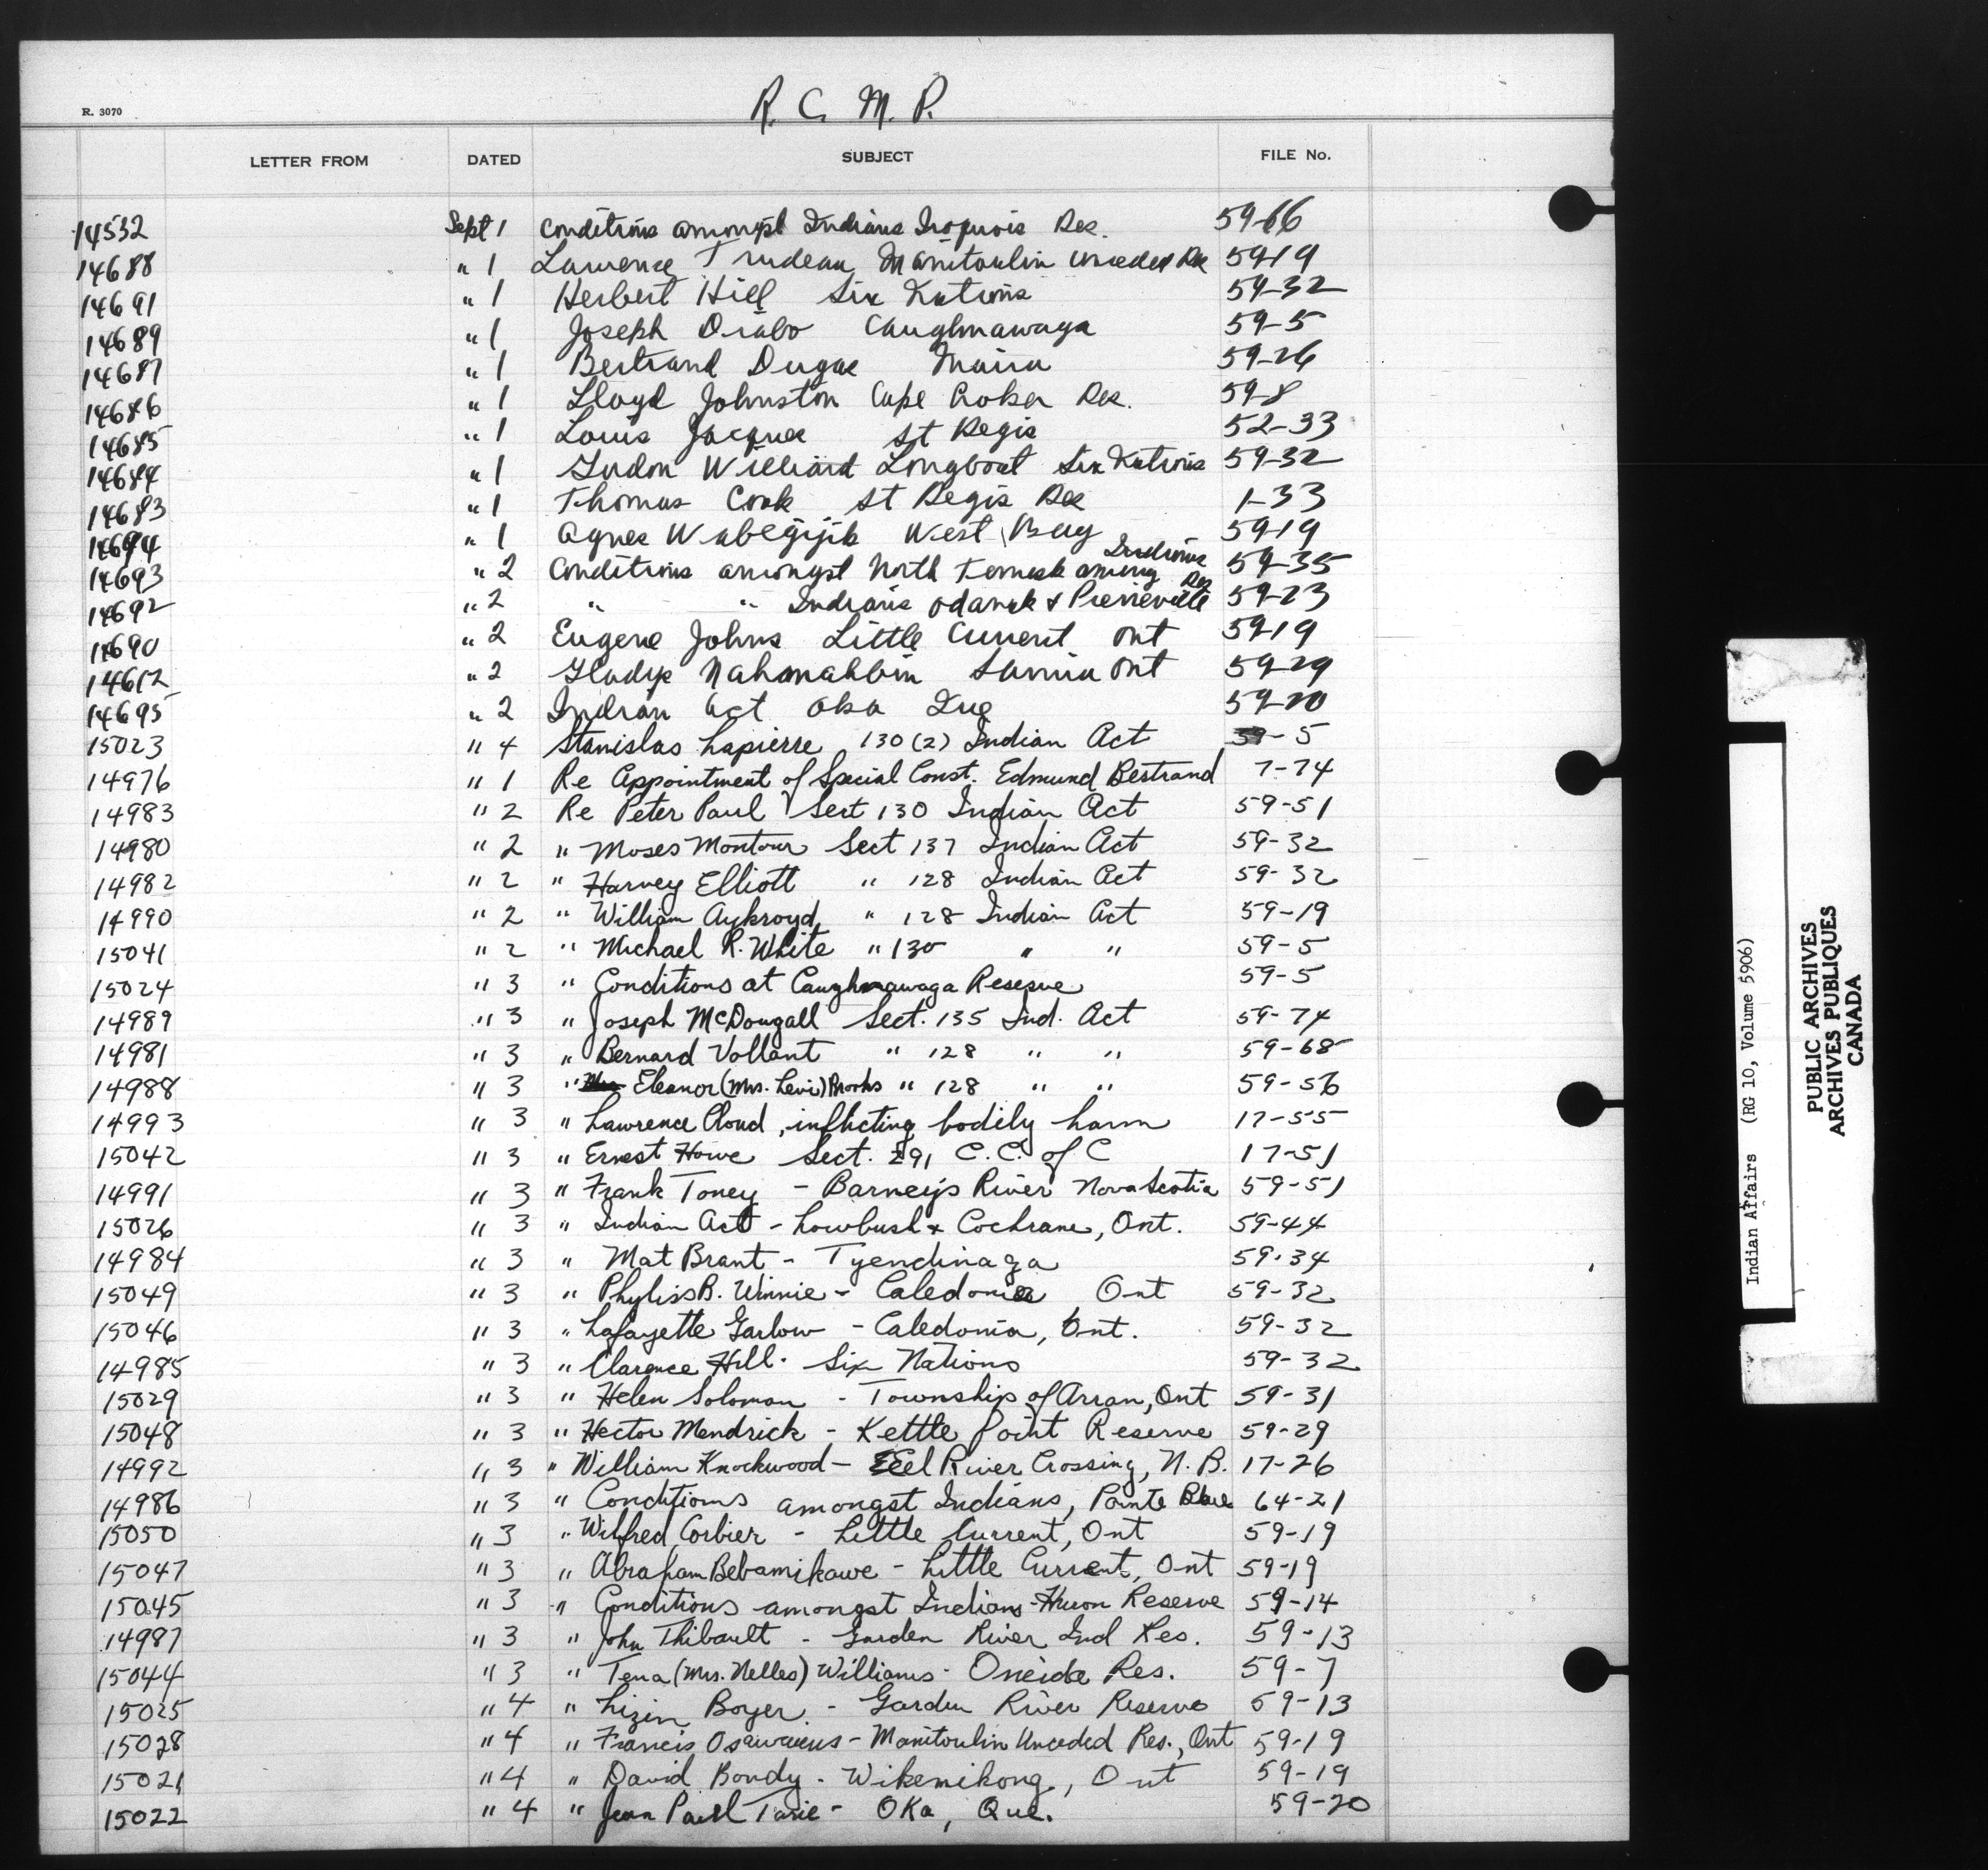 R. C. M. P.
R. 3070
LETTER FROM DATED SUBJECT FILE No.
14532 Sept 1 Conditions amongst Indians Iroquois Res. 59-66
14688 " 1 Lawrence Trudeau Manitoulin Unceded Res 59-19
14691 " 1 Herbert Hill Six Nations 59-32
14689 " 1 Joseph Diabo Caughnawaga 59-5
14687 " 1 Bertrand Dugas Maria 59-26
14686 " 1 Lloyd Johnston Cape Croker Res. 59-8
14685 " 1 Louis Jacques St Regis 52-33
14684 " 1 Williard Longboat Six Nations 59-32
14683 " 1 Thomas Cook St Regis Res 1-33
14694 " 1 Agnes Wabegijik West Bay 59-19
14693 " 2 Conditions amongst North Temiskaming Indians Res 59-35
14692 " 2 " " Indians Odanak & Pierreville 59-23
14690 " 2 Eugene Johns Little Current Ont 59-19
14612 " 2 Gladys Nahmahbin Sarnia Ont 59-29
14695 " 2 Indian Act Oka Que 59-20
15023 " 4 Stanislas Lapierre 130(2) Indian Act 59-5
14976 " 1 Re Appointment of Special Const. Edmund Bertrand 7-74
14983 " 2 Re Peter Paul Sect 130 Indian Act 59-51
14980 " 2 " Moses Montour Sect 137 Indian Act 59-32
14982 " 2 " Harvey Elliott " 128 Indian Act 59-32
14990 " 2 " William Aykroyd " 128 Indian Act 59-19
15041 " 2 " Michael R. White " 130 " " 59-5
15024 " 3 " Conditions at Caughnawaga Reserve 59-5
14989 " 3 " Joseph McDougall Sect. 135 Ind. Act 59-74
14981 " 3 " Bernard Vollant " 128 " " 59-68
14988 " 3 " Eleanor (Mrs. Levi) Brooks " 128 " " 59-56
14993 " 3 " Lawrence Cloud, inflicting bodily harm 17-55
15042 " 3 " Ernest Howe Sect. 291 C.C. of C 17-51
14991 " 3 " Frank Toney - Barney's River Nova Scotia 59-51
15026 " 3 " Indian Act - Lowbush & Cochrane, Ont. 59-44
14984 " 3 " Mat Brant - Tyendinaga 59-34
15049 " 3 " Phyliss B. Winnie - Caledonia Ont 59-32
15046 " 3 " Lafayette Garlow - Caledonia, Ont. 59-32
14985 " 3 " Clarence Hill - Six Nations 59-32
15029 " 3 " Helen Solomon - Township of Arran, Ont 59-31
15048 " 3 " Hector Mendrick - Kettle Point Reserve 59-29
14992 " 3 " William Knockwood - Eel River Crossing, N.B. 17-26
14986 " 3 " Conditions amongst Indians, Pointe Bleue 64-21
15050 " 3 " Wilfred Corbier - Little Current, Ont 59-19
15047 " 3 " Abraham Bebamikawe - Little Current, Ont 59-19
15045 " 3 " Conditions amongst Indians - Huron Reserve 59-14
14987 " 3 " John Thibault - Garden River Ind Res. 59-13
15044 " 3 " Tena (Mrs. Nelles) Williams - Oneida Res. 59-7
15025 " 4 " Lizin Boyer - Garden River Reserve 59-13
15028 " 4 " Francis - Manitoulin Unceded Res., Ont 59-19
15021 " 4 " David Bondy - Wikemikong, Ont 59-19
15022 " 4 " Jean Paul - Oka, Que. 59-20
Indian Affairs (RG 10, Volume 5906)
PUBLIC ARCHIVES
ARCHIVES PUBLIQUES
CANADA